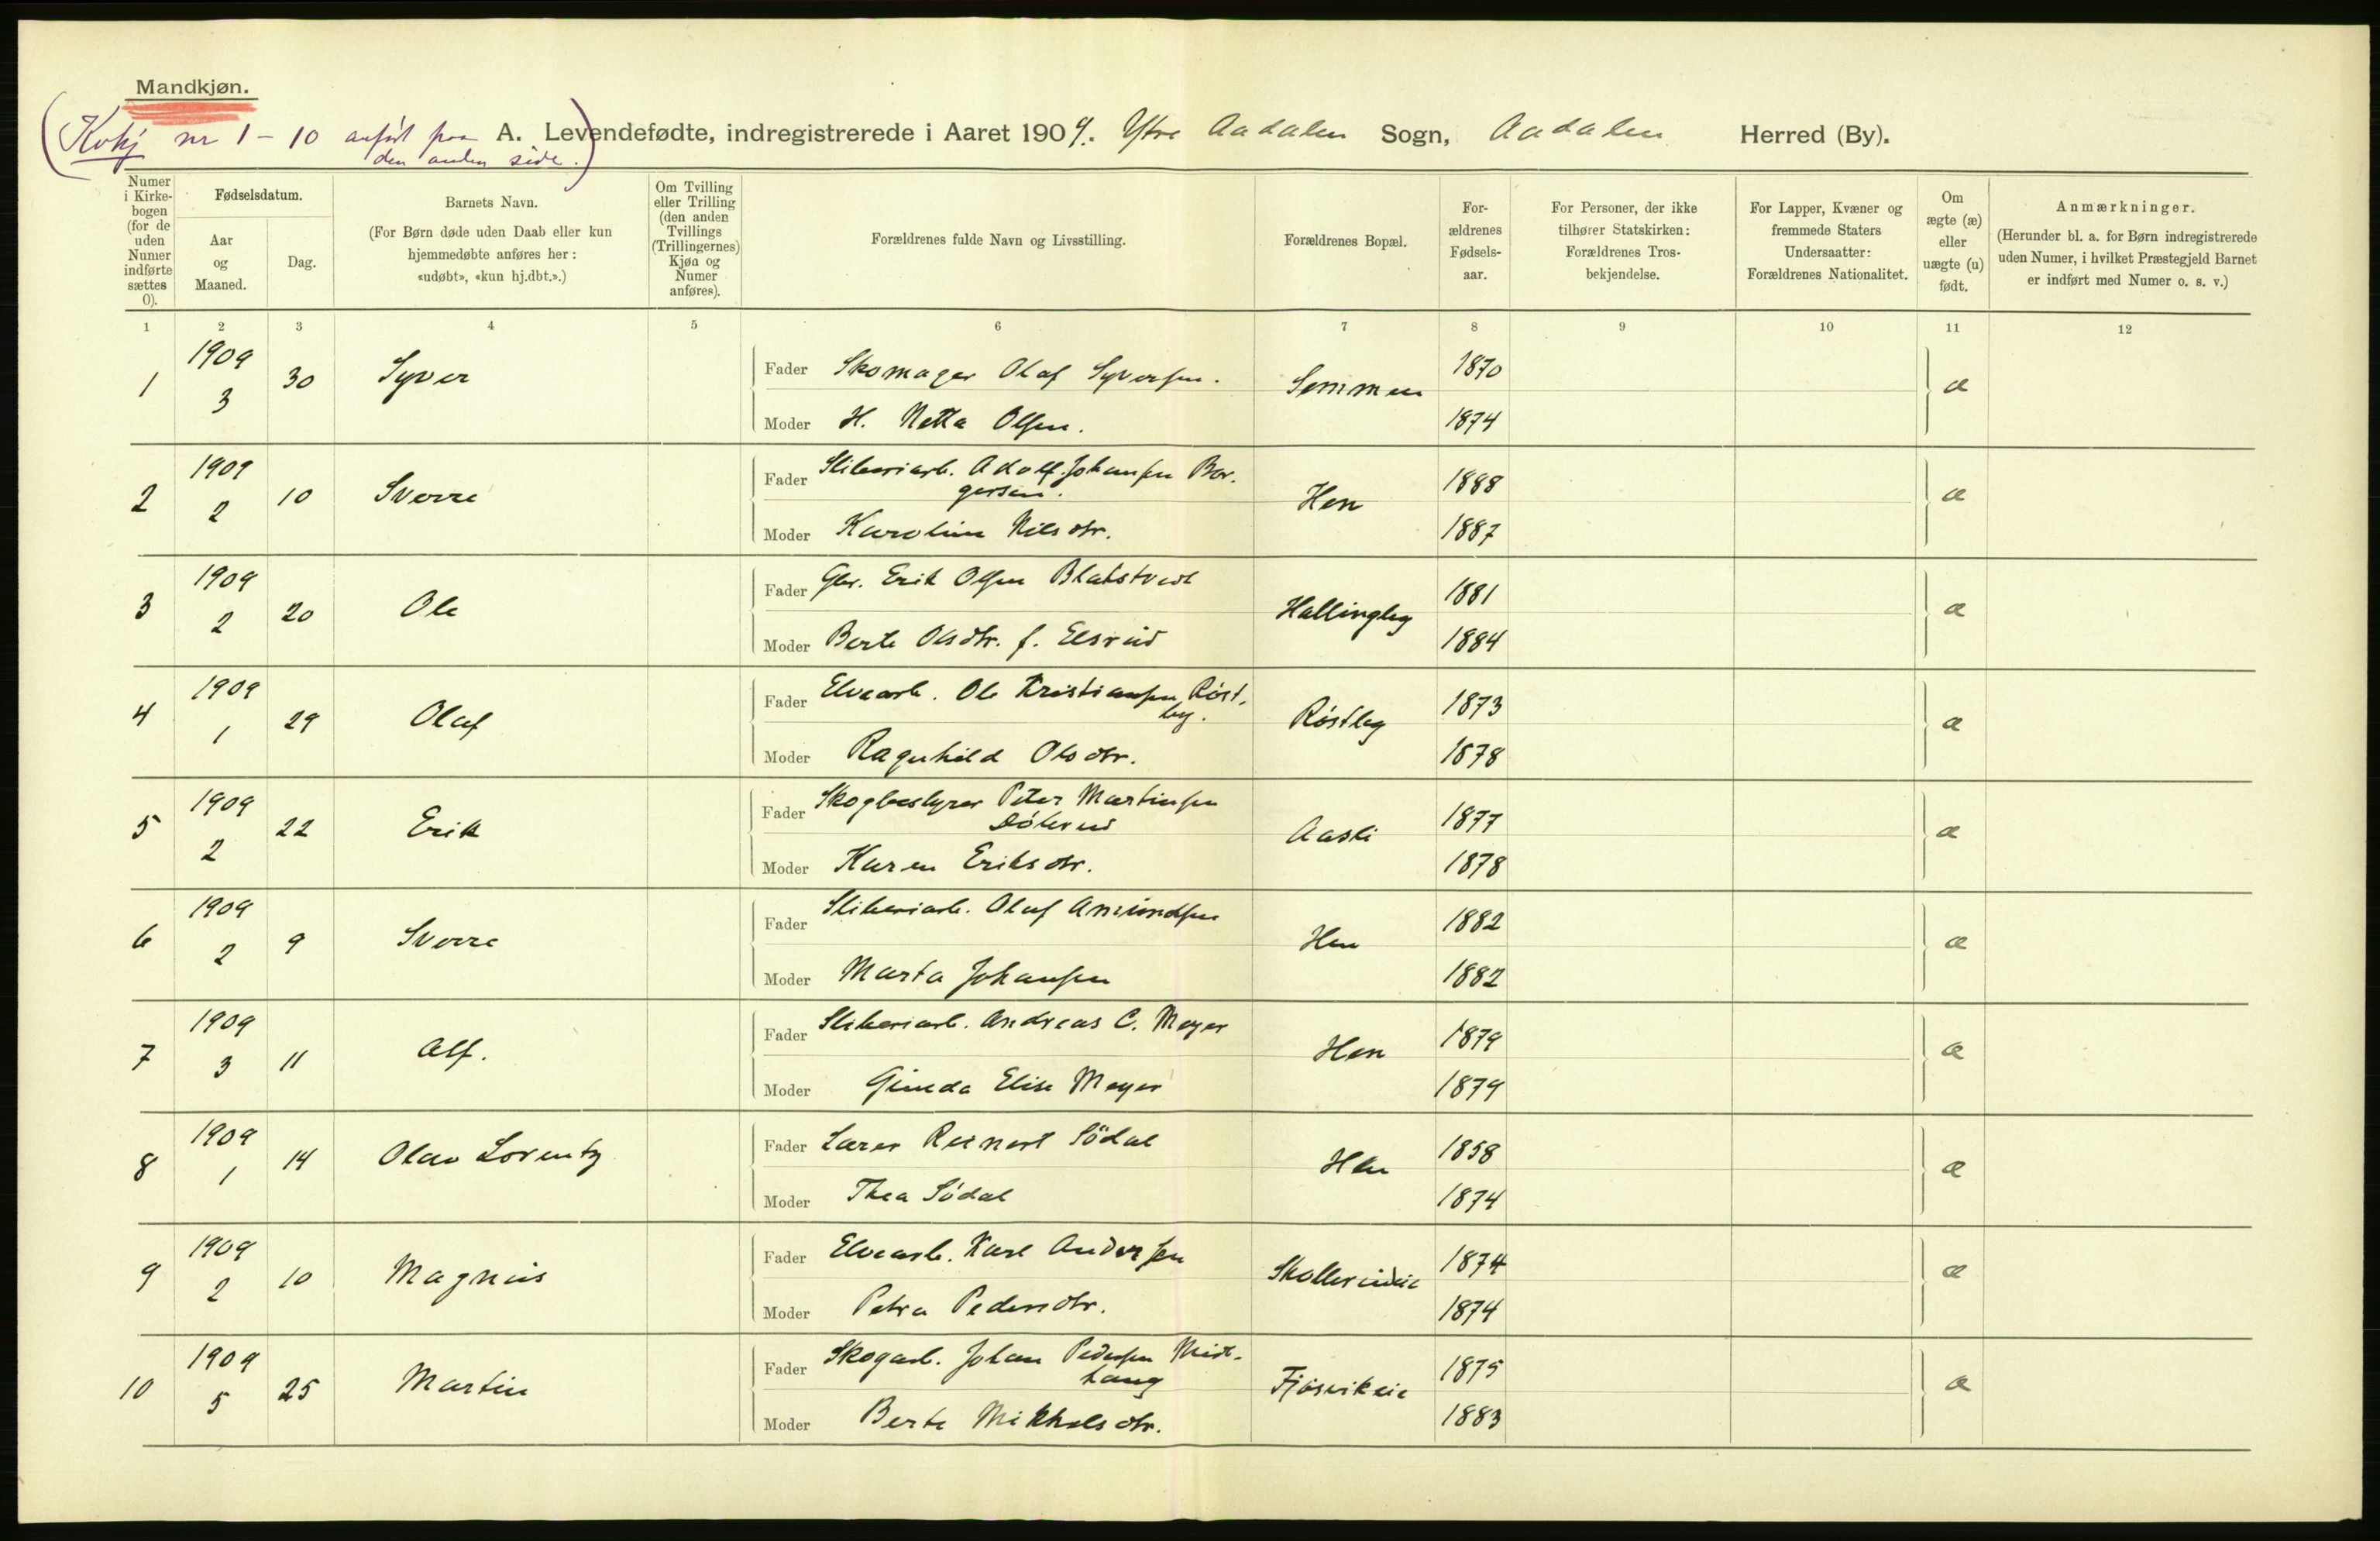 Mandkjøn.
(Kvkj nr 1 - 10 anført paa den anden side.)
A. Levendefødte, indregistrerede i Aaret 1909. Ytre Aadalen Sogn, Aadalen Herred (By).
Numer i Kirkebogen (for de uden Numer indførte sættes 0).
Fødselsdatum.
Aar og Maaned.
Dag.
Barnets Navn.
(For Børn døde uden Daab eller kun hjemmedøbte anføres her: «udøbt», «kun hj.dbt.».)
Om Tvilling eller Trilling (den anden Tvillings (Trillingernes) Kjøn og Numer anføres).
Forældrenes fulde Navn og Livsstilling.
Forældrenes Bopæl.
Forældrenes Fødselsaar.
For Personer, der ikke tilhører Statskirken: Forældrenes Trosbekjendelse.
For Lapper, Kvæner og fremmede Staters Undersaatter: Forældrenes Nationalitet.
Om ægte (æ) eller uægte (u) født.
Anmærkninger.
(Herunder bl. a. for Børn indregistrerede uden Numer, i hvilket Præstegjeld Barnet er indført med Numer o. s. v.)
1 2 3 4 5 6 7 8 9 10 11 12
1 1909 3 30 Syver Fader Skomager Olaf Syversen. Semmen 1870 æ
Moder H. Netta Olsen. 1874
2 1909 2 10 Sverre Fader Sliberiarb. Adolf Johansen Borgersen. Hen 1888 æ
Moder Karoline Nilsdtr. 1887
3 1909 2 20 Ole Fader Gbr. Erik Olsen Blakstvedt Hallingby 1881 æ
Moder Berte Olsdtr. f. Elsrud 1884
4 1909 1 29 Olaf Fader Elvearb. Ole Kristiansen Røstby. Røstby 1873 æ
Moder Ragnhild Olsdtr. 1878
5 1909 2 22 Erik Fader Skogbestyrer Peter Martinsen Dölerud Aasli 1877 æ
Moder Karen Eriksdtr. 1878
6 1909 2 9 Sverre Fader Sliberiarb. Olaf Amundsen Hen 1882 æ
Moder Marta Johansen 1882
7 1909 3 11 Alf. Fader Sliberiarb. Andreas C. Meyer Hen 1879 æ
Moder Gineda Elise Meyer 1879
8 1909 1 14 Olav Lorentz Fader Lærer Reinert Södal Hen 1858 æ
Moder Thea Södal 1874
9 1909 2 10 Magnus Fader Elvearb. Karl Andersen Skollerudeie 1874 æ
Moder Petra Pedersdtr. 1874
10 1909 5 25 Martin Fader Skogarb. Johan Pedersen Midthaug Fjösvikeie 1875 æ
Moder Berte Mikkelsdtr. 1883